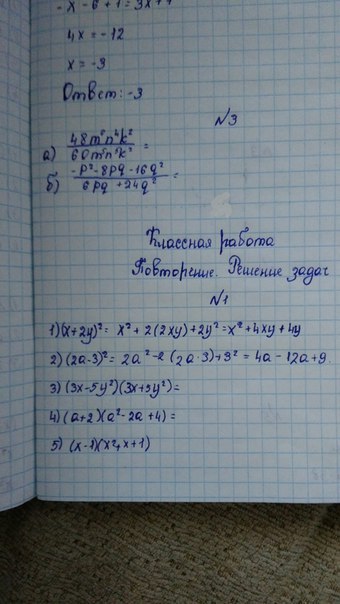 -x - 6 + 1 = 3x + 7
4x = -12
x = -3
Ответ: -3
№3
а) 48m⁸n⁴k² / 60m⁵n⁵k² =
б) -p²-8pq-16q² / 6pq+24q² =
Классная работа
Повторение. Решение задач
№1
1) (x+2y)² = x²+2(2xy)+2y² = x²+4xy+4y
2) (2a-3)² = 2a²-2(2a·3)+3² = 4a-12a+9.
3) (3x-5y²)(3x+5y²)=
4) (a+2)(a²-2a+4)=
5) (x-1)(x²+x+1)